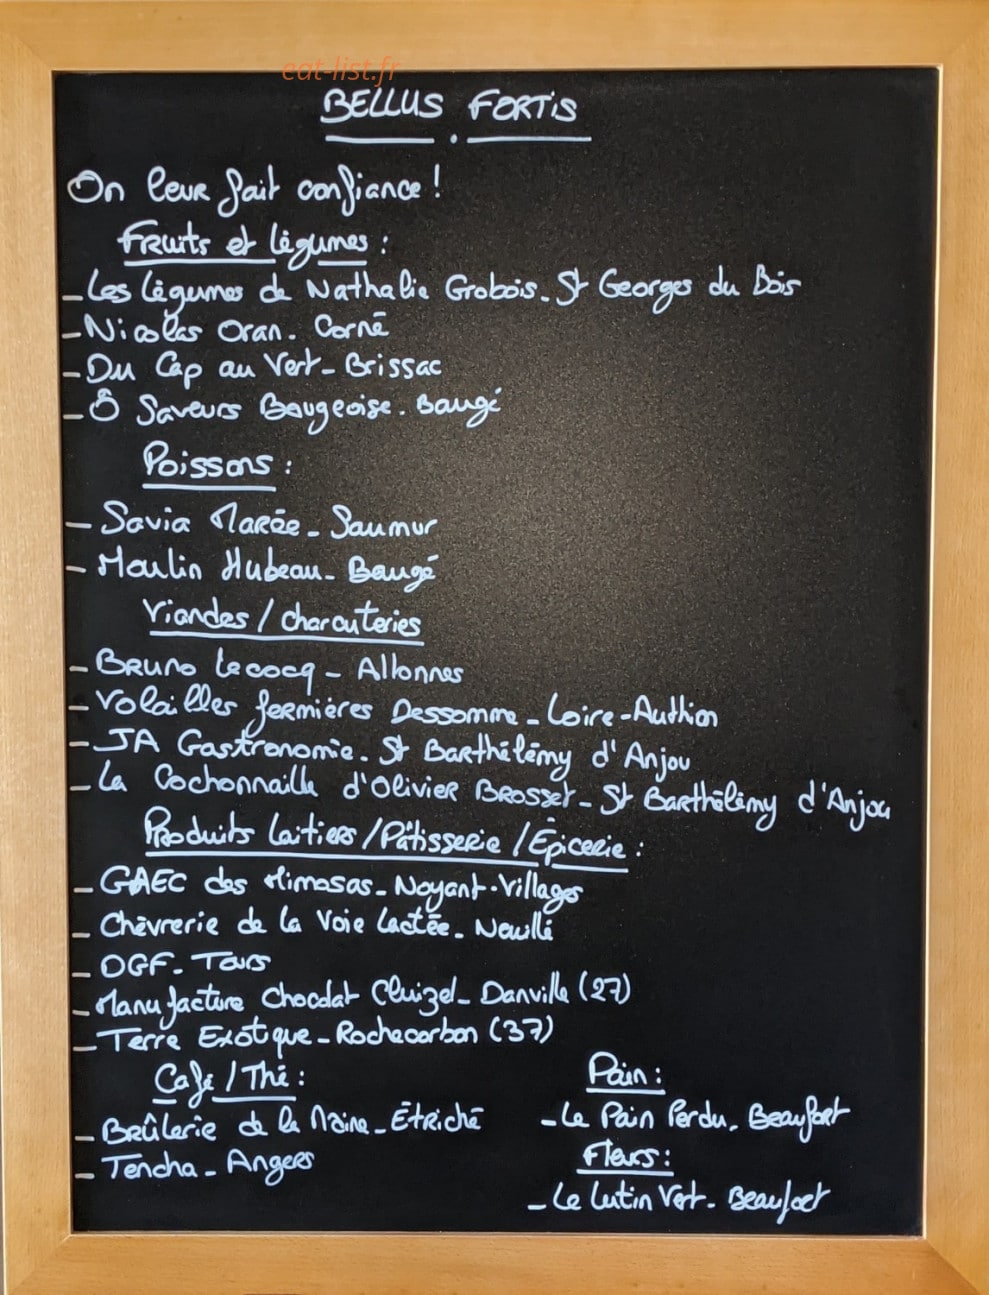 eat-list.fr
BELLUS . FORTIS
On leur fait confiance !
Fruits et légumes :
- Les légumes de Nathalie Grobois - St Georges du Bois
- Nicolas Oran - Corné
- Du Cap au Vert - Brissac
- Ô Saveurs Baugeoise - Baugé
Poissons :
- Savia Marée - Saumur
- Moulin Hubeau - Baugé
Viandes / charcuteries
- Bruno Lecocq - Allonnes
- Volailles fermières Dessomme - Loire-Authion
- JA Gastronomie - St Barthélémy d'Anjou
- La Cochonnaille d'Olivier Brosset - St Barthélémy d'Anjou
Produits laitiers / Pâtisserie / Épicerie :
- GAEC des Mimosas - Noyant-Villages
- Chèvrerie de la Voie Lactée - Neuillé
- DGF - Tours
- Manufacture Chocolat Cluizel - Danville (27)
- Terre Exotique - Rochecorbon (37)
Café / Thé :
- Brûlerie de la Maine - Étriché
- Tencha - Angers
Pain :
- Le Pain Perdu - Beaufort
Fleurs :
- Le Lutin Vert - Beaufort